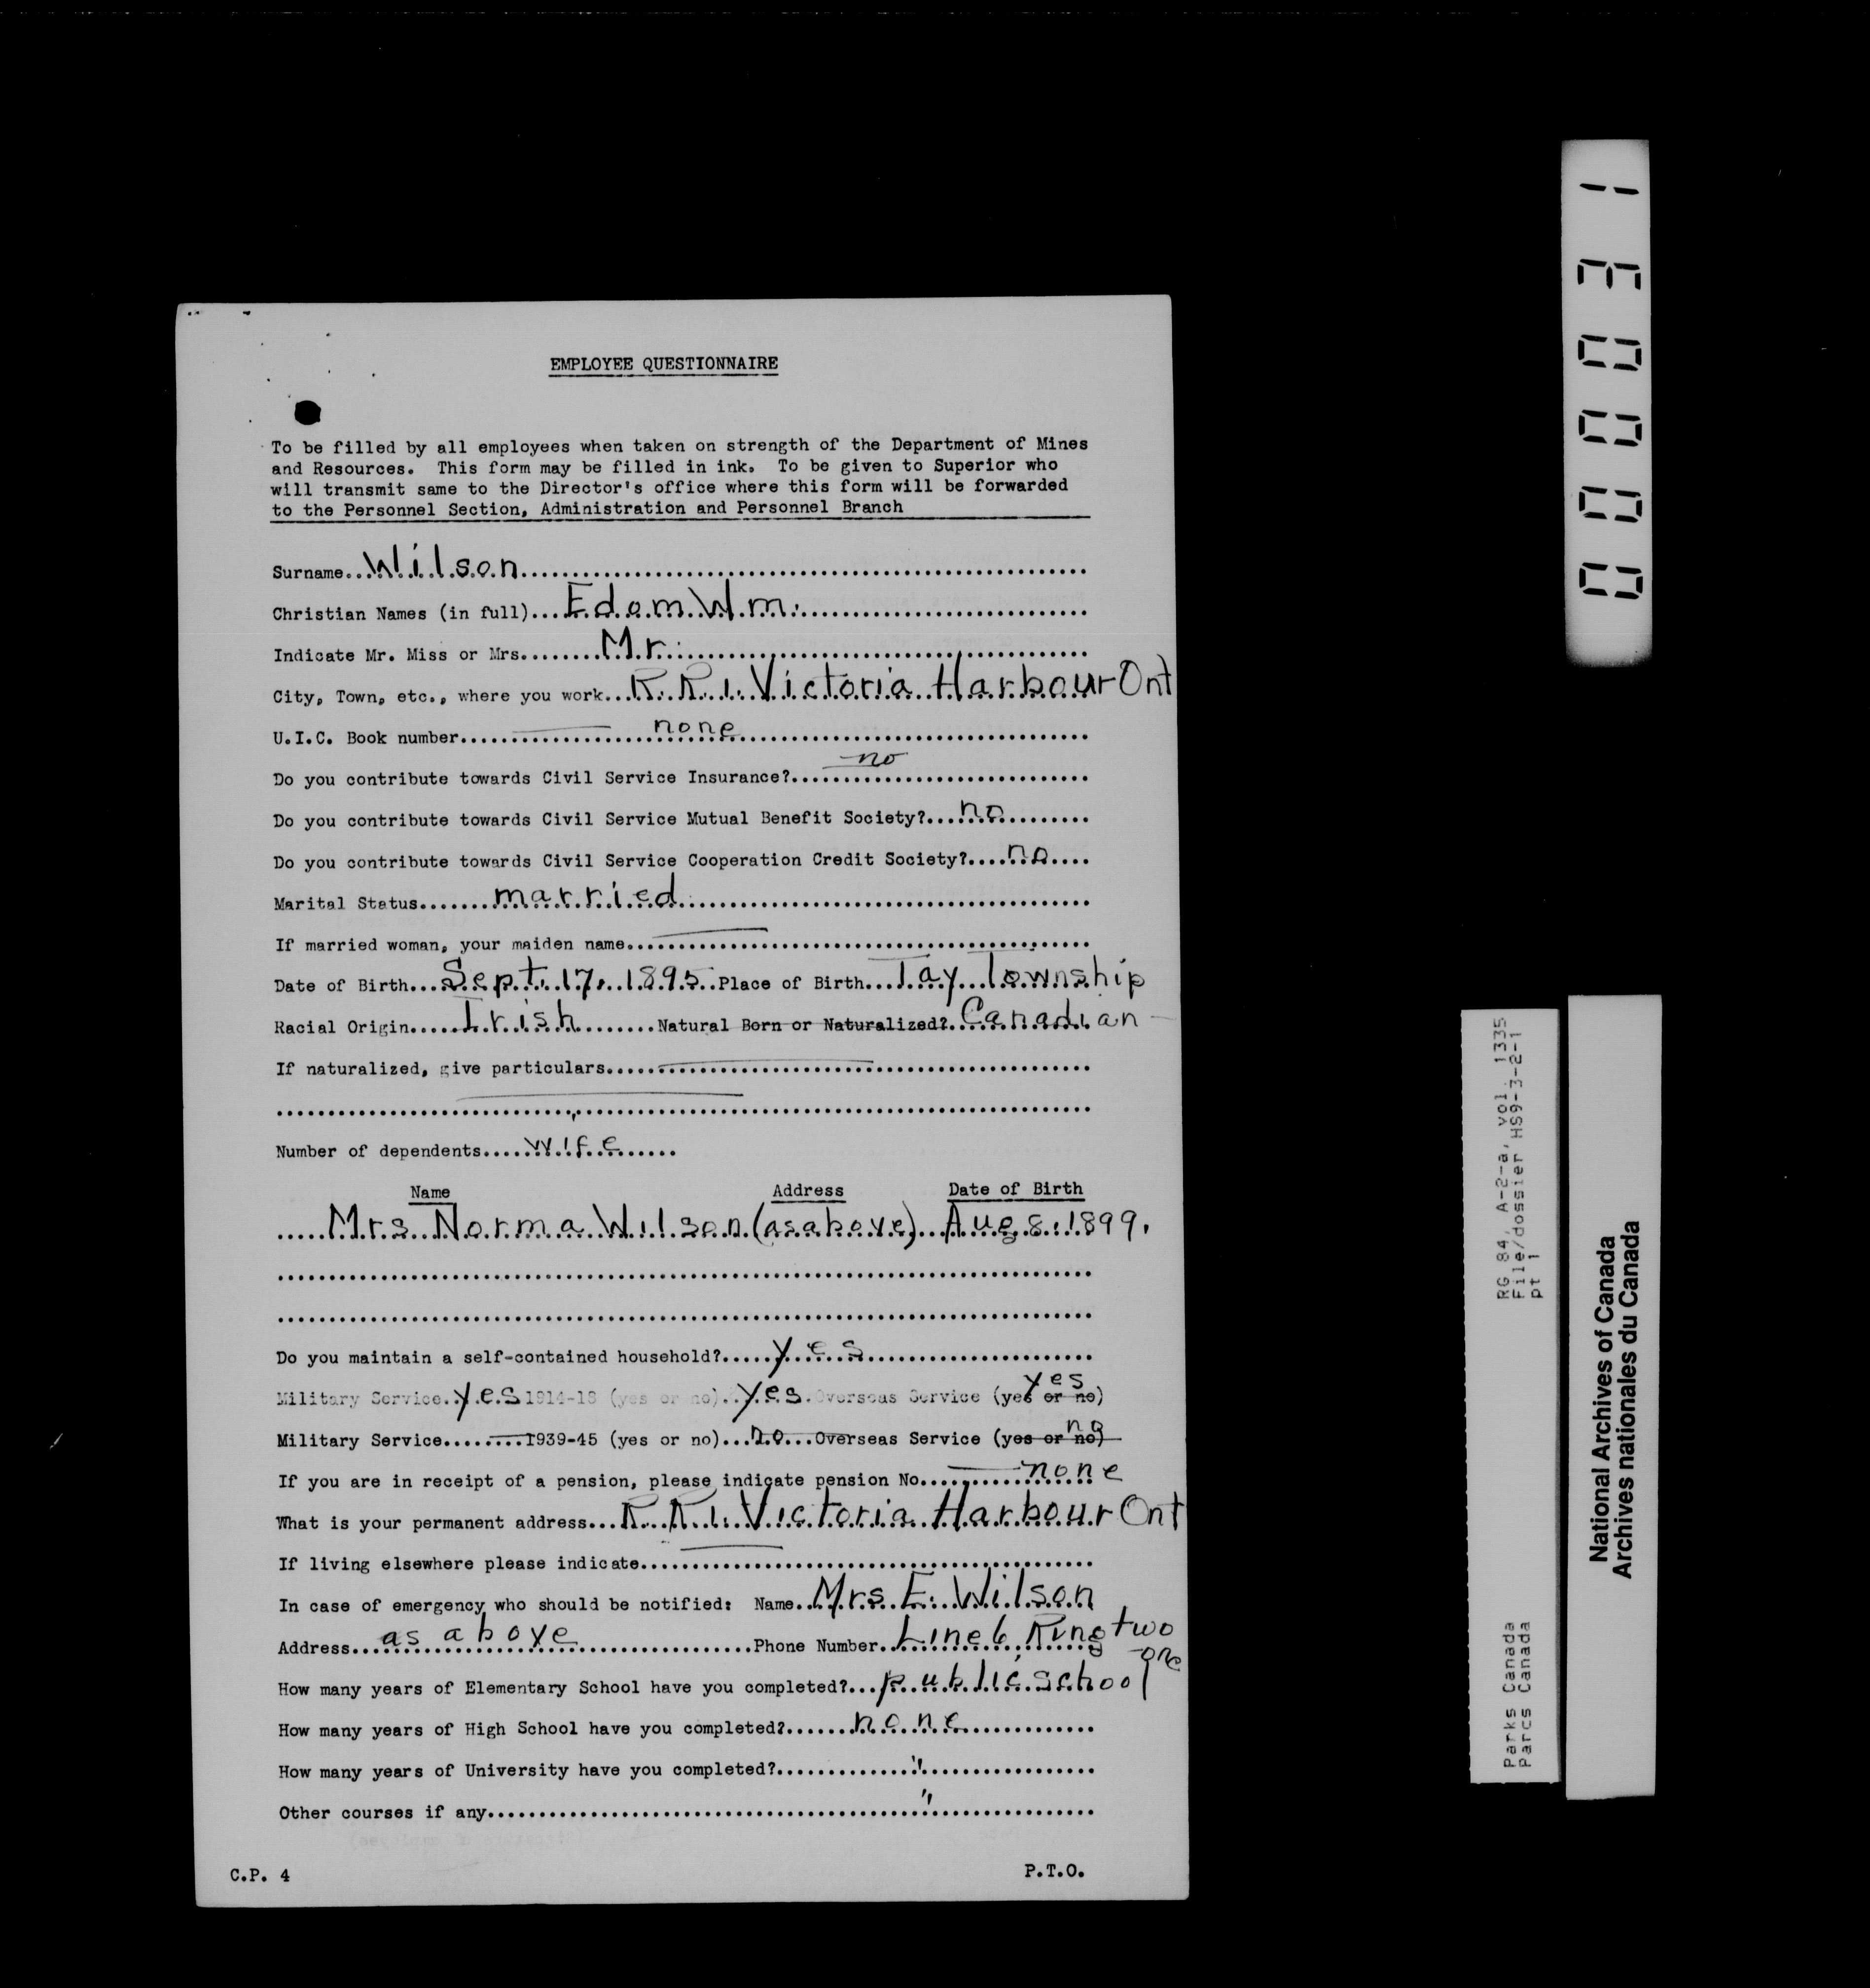 EMPLOYEE QUESTIONNAIRE
To be filled by all employees when taken on strength of the Department of Mines
and Resources. This form may be filled in ink. To be given to Superior who
will transmit same to the Director's office where this form will be forwarded
to the Personnel Section, Administration and Personnel Branch
Surname..Wilson
Christian Names (in full)...Edom Wm.
Indicate Mr. Miss or Mrs........Mr.
City, Town, etc., where you work...R.R.1. Victoria Harbour Ont
U.I.C. Book number.......none
Do you contribute towards Civil Service Insurance?....no
Do you contribute towards Civil Service Mutual Benefit Society?...no
Do you contribute towards Civil Service Cooperation Credit Society?...no
Marital Status.......married
If married woman, your maiden name...
Date of Birth...Sept. 17, 1895. Place of Birth...Tay Township
Racial Origin.....Irish........Natural Born or Naturalized?.Canadian
If naturalized, give particulars.....
Number of dependents.....wife......
Name Address Date of Birth
Mrs. Norma Wilson (as above)...Aug 8. 1899.
Do you maintain a self-contained household?.....yes
Military Service..yes 1914-18 (yes or no)..yes.Overseas Service (yes or no) yes
Military Service........1939-45 (yes or no)...no...Overseas Service (yes or no) no
If you are in receipt of a pension, please indicate pension No.....none
What is your permanent address...R.R.1. Victoria Harbour Ont
If living elsewhere please indicate....
In case of emergency who should be notified: Name..Mrs. E. Wilson
Address...as above....Phone Number..Line 6, Ring two
one
How many years of Elementary School have you completed?...public school
How many years of High School have you completed?.......none
How many years of University have you completed?......."
Other courses if any......."
C.P. 4 P.T.O.
000031
RG 84, A-2-a, vol. 1335
File/dossier HS9-3-2-1
pt 1
Parks Canada
Parcs Canada
National Archives of Canada
Archives nationales du Canada